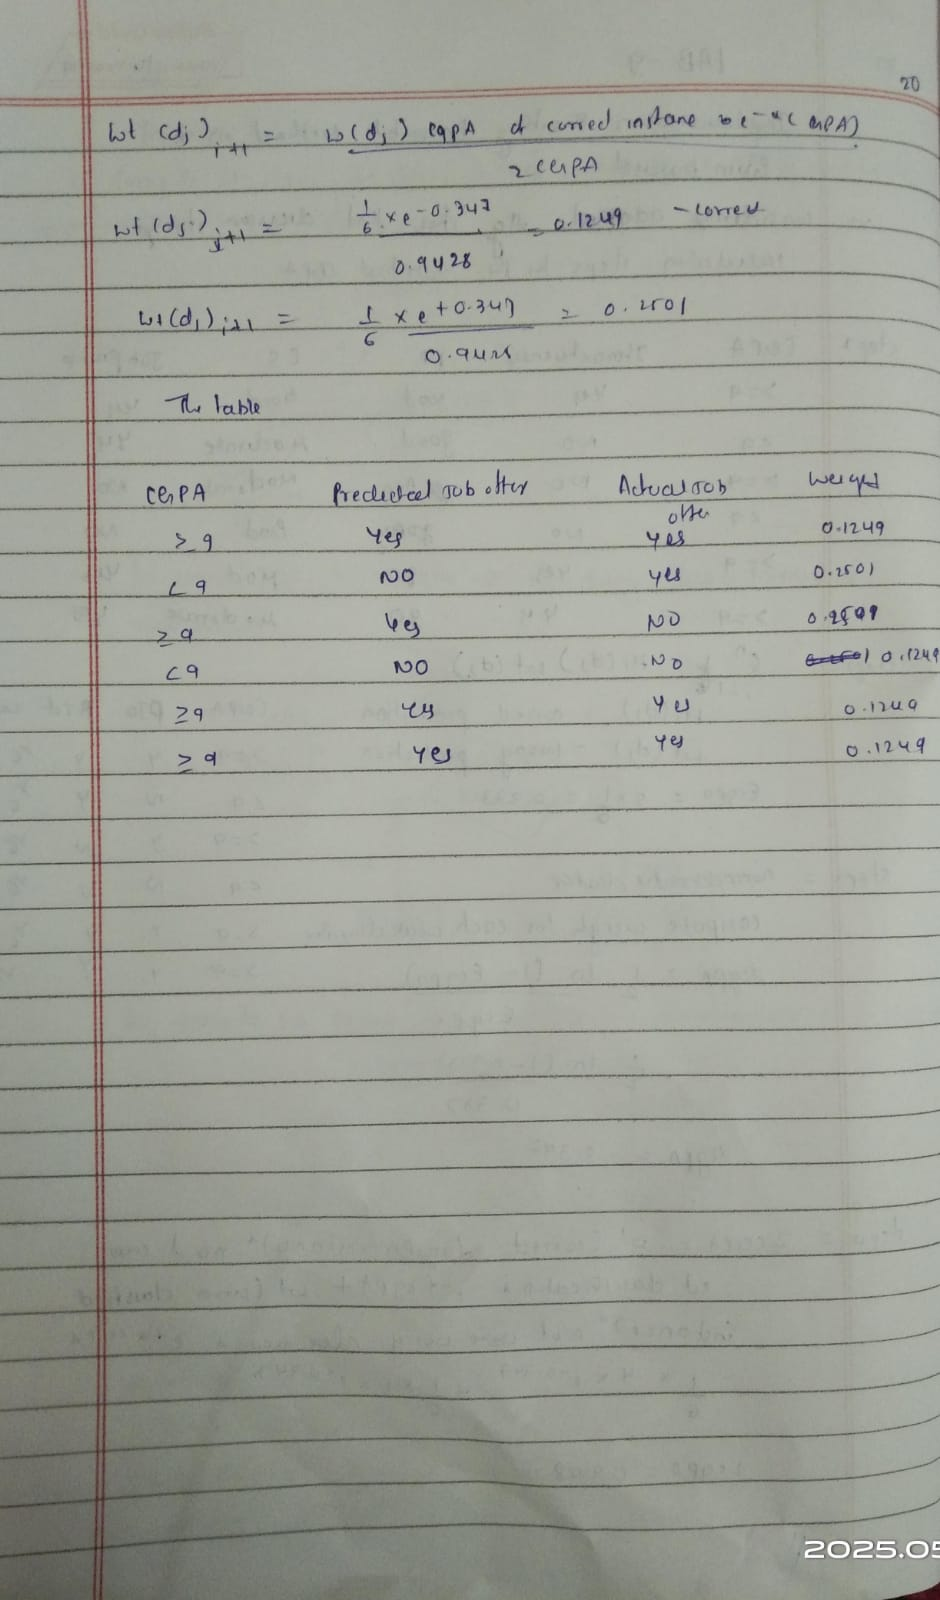 20
wt (dj)i+1 = w(dj) CGPA of correct instane × e-α( CGPA)
2 CGPA
wt (dj)j+1 = 1/6 × e-0.347 = 0.1249 - correct
0.9428
wt(dj)i+1 = 1/6 × e+0.347 = 0.2501
The table
CGPA Predicted Job offer Actual Job offer Weight
≥9 Yes yes 0.1249
<9 NO yes 0.2501
≥9 Yes NO
<9 NO NO 0.1249
≥9 yes Yes 0.1249
≥9 yes yes 0.1249
2025.05